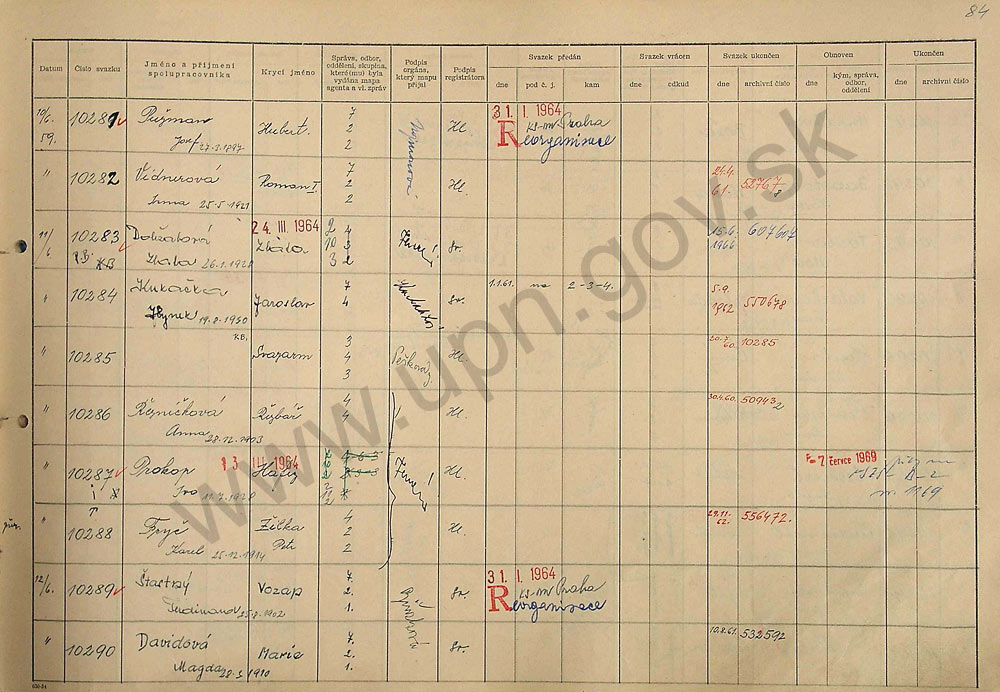 84
Datum
Číslo svazku
Jméno a příjmení
spolupracovníka
Krycí jméno
Správa, odbor,
oddělení, skupina,
které(mu) byla
vydána mapa
agenta a vl. zpráv
Podpis
orgánu,
který mapu
přijal
Podpis
registrátora
Svazek předán
dne
pod č. j.
kam
Svazek vrácen
dne
odkud
Svazek ukončen
dne
archivní číslo
Obnoven
dne
kým, správa,
odbor,
oddělení
Ukončen
dne
archivní číslo
10/6.
59.
10281
Josef 27.3.1897
Hubert.
7
2
2
Hl.
31. I. 1964
KS-MV Praha
Reorganisace
"
10282
Vídnerová
Irma 25.5.1921
Roman I.
7
2
2
Hl.
21.4.
61.
52767/8
11/6
10283
KB
24. III. 1964
Zlata 26.1.1928
Zlata.
2 4
10 3
3 2
Sr.
15.6.
1966
607607
"
10284
Kukačka
Zbynek 19.8.1930
Jaroslav
7
4
Sr.
1.1.61.
na
2-3-4.
5.9.
1962
550678
"
10285
KB.
Svazarm
3
4
3
Pešková
Hl.
20.7.
60.
10285
"
10286
Řezníčková
Anna 28.12.1903
Rybář
4
4
Hl.
30.4.60.
509432
"
10287
Prokop
Ivo 11.7.1928
13 III. 1964
Hl.
-2 července 1969
"
10288
Fryč
Karel 25.12.1914
Žižka
Petr
4
2
2
Hl.
29.11.
62.
556472.
12/6.
10289
Šťastný
Ferdinand 25.8.1902
Vozap
7.
2.
1.
Sr.
31. I. 1964
KS-MV Praha
Reorganisace
"
10290
Davidová
Magda 28.3.1910
Marie
7.
2.
1.
Sr.
10.8.61.
532592
www.upn.gov.sk